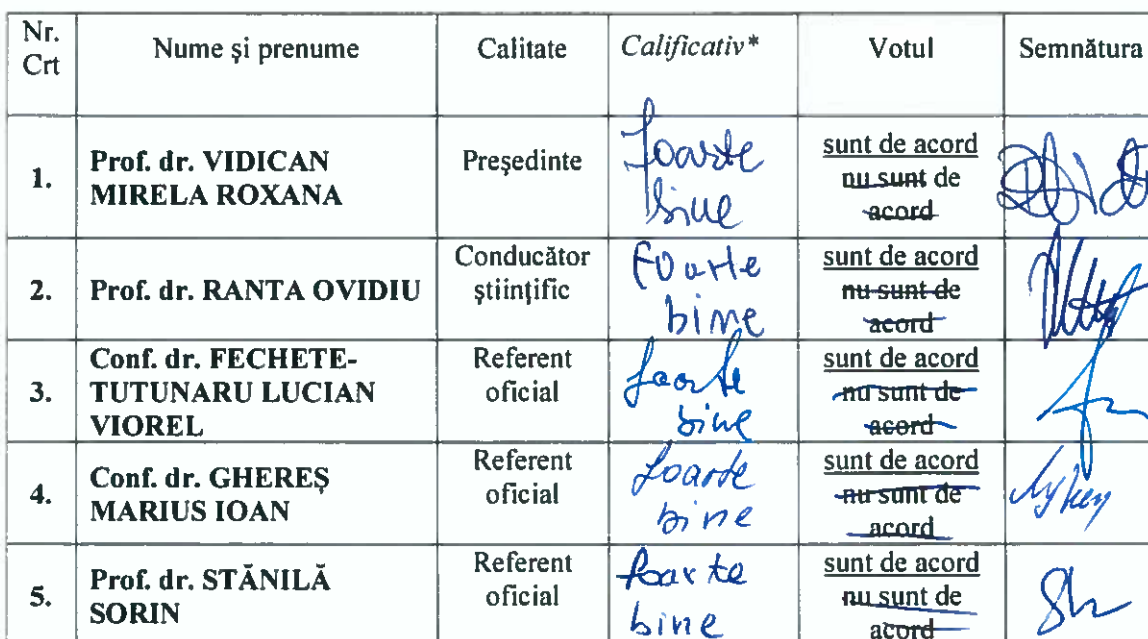 Nr. Crt Nume și prenume Calitate Calificativ* Votul Semnătura
1. Prof. dr. VIDICAN MIRELA ROXANA Președinte Foarte bine sunt de acord nu sunt de acord
2. Prof. dr. RANTA OVIDIU Conducător științific Foarte bine sunt de acord nu sunt de acord
3. Conf. dr. FECHETE-TUTUNARU LUCIAN VIOREL Referent oficial foarte bine sunt de acord nu sunt de acord
4. Conf. dr. GHEREȘ MARIUS IOAN Referent oficial foarte bine sunt de acord nu sunt de acord
5. Prof. dr. STĂNILĂ SORIN Referent oficial foarte bine sunt de acord nu sunt de acord